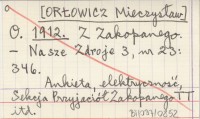 [ORŁOWICZ Mieczysław]
O. 1912. Z Zakopanego.
– Nasze Zdroje 3, nr 23:
346.
Ankieta, elektryczność,
Sekcja Przyjaciół Zakopanego TT
itd.